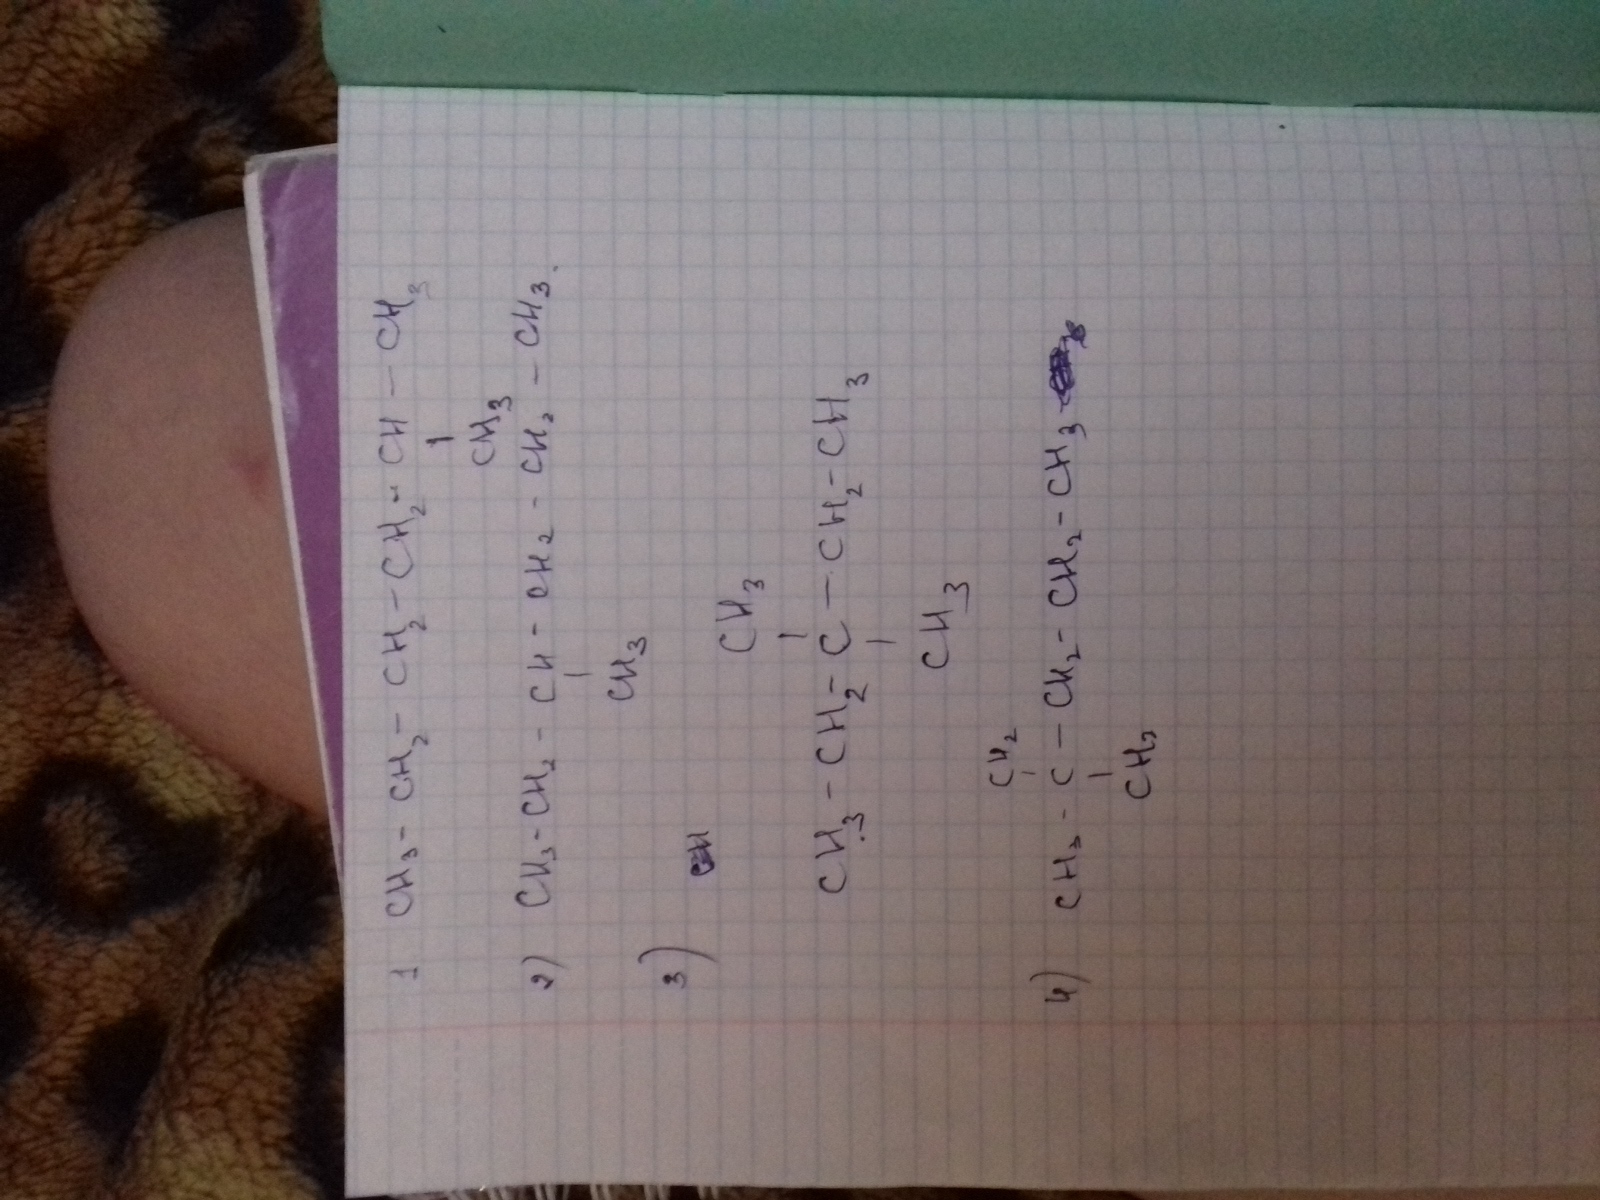 1 CH3 - CH2 - CH2 - CH2 - CH - CH3
CH3
2) CH3 - CH2 - CH - CH2 - CH2 - CH3.
CH3
3)
CH3
CH3 - CH2 - C - CH2 - CH3
CH3
CH2
4) CH3 - C - CH2 - CH2 - CH3
CH3